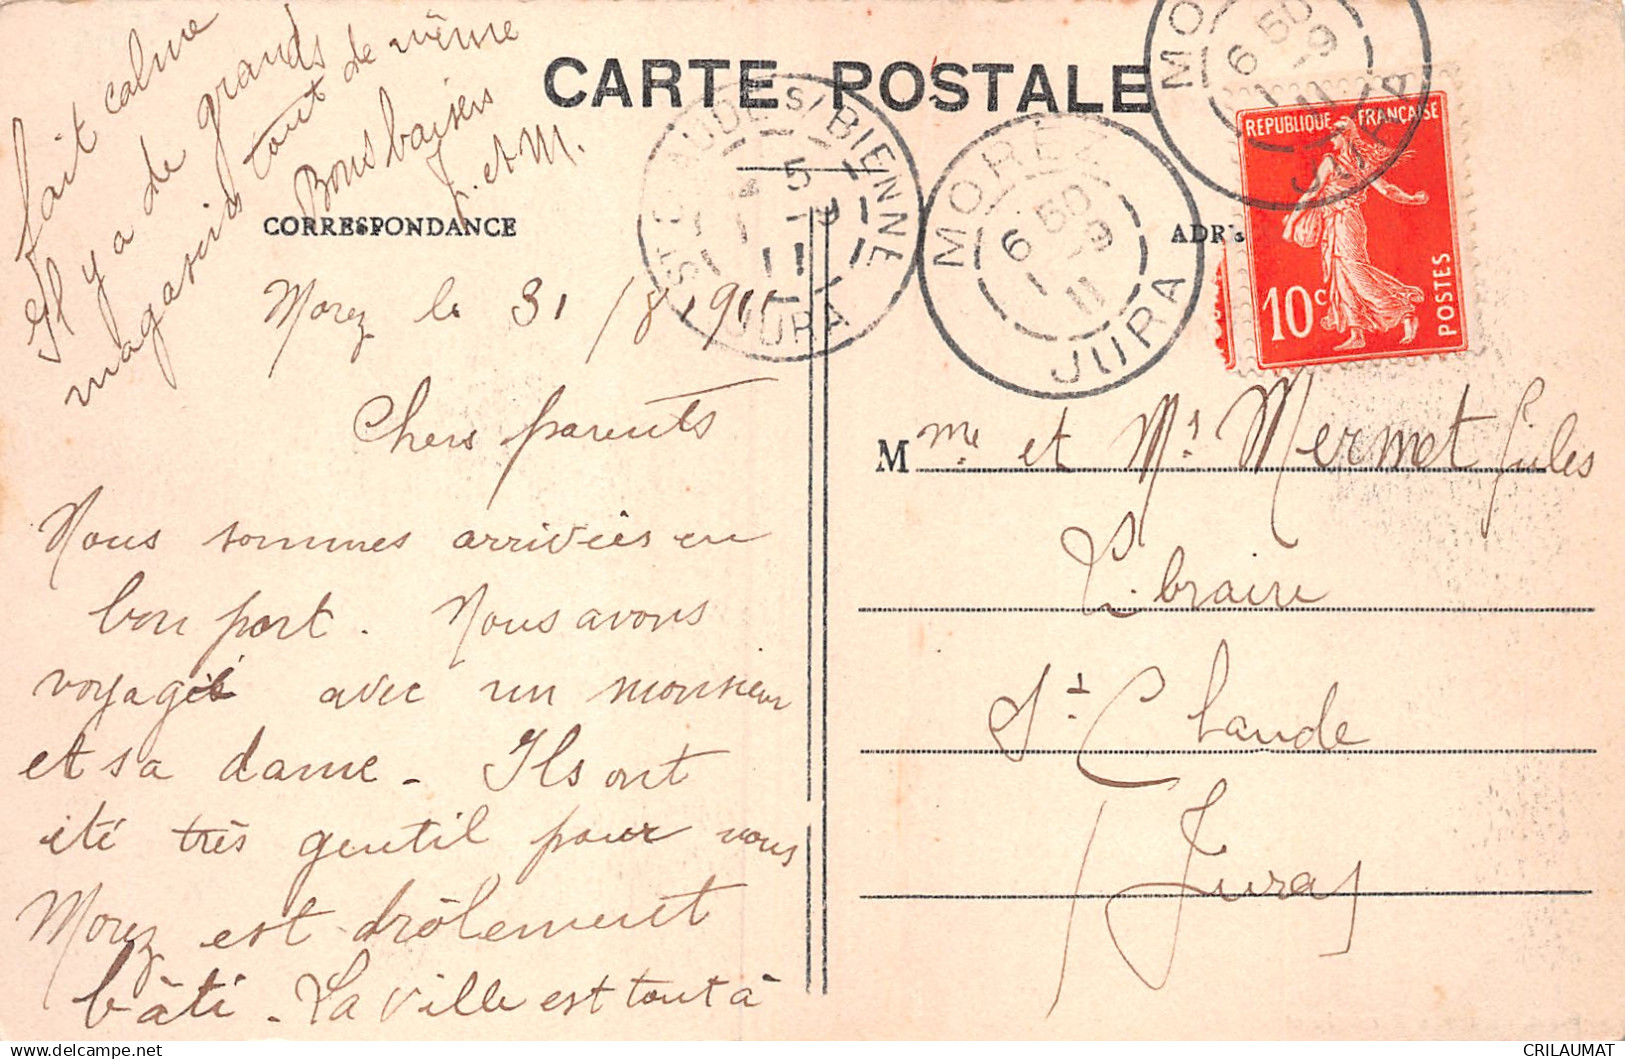 CARTE POSTALE
CORRESPONDANCE
Morez le 31/8 1911
Chers parents
Nous sommes arrivées en
bon port. Nous avons
voyagé avec un monsieur
et sa dame - Ils ont
été très gentil pour nous
Morez est drôlement
bâti - La ville est tout à
fait calme
Il y a de grands
magasins tout de même
Bons baisers
J. et M.
ST CLAUDE S/ BIENNE
5
9
11
JURA
MOREZ
6 50
9
11
JURA
MO
6 50
9
11
JURA
REPUBLIQUE FRANÇAISE
10c
POSTES
ADR
Mme et Mr Mermet Jules
Libraire
St Claude
(Jura)
CRILAUMAT